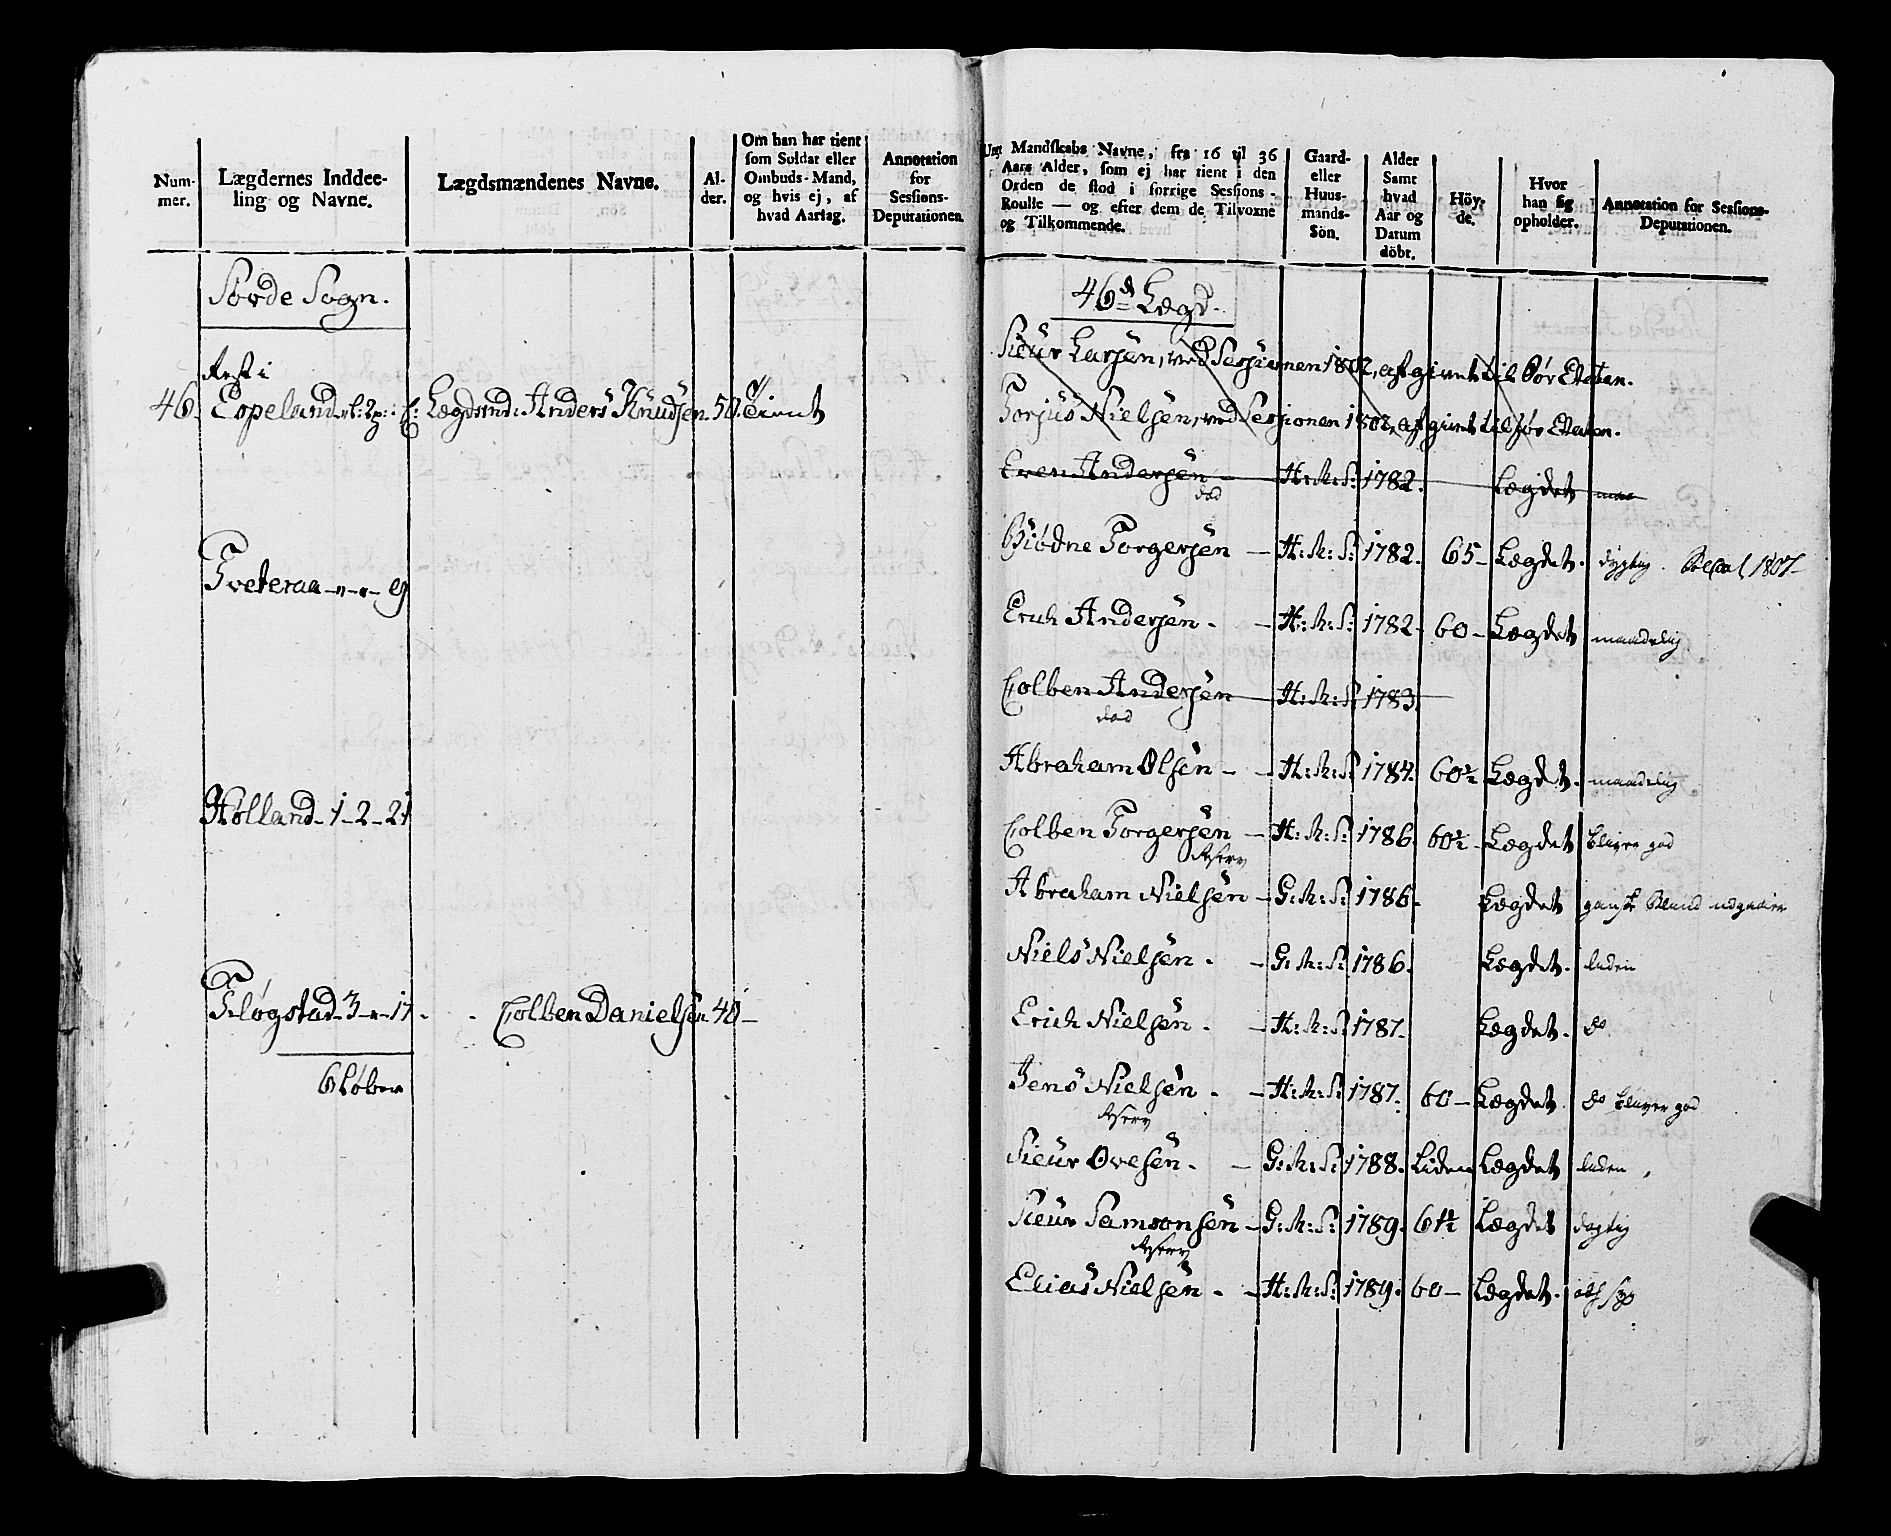 Num-
mer.
Lægdernes Inddee-
ling og Navne.
Lægdsmændenes Navne.
Al-
der.
Om han har tient
som Soldat eller
Ombuds-Mand,
og hvis ej, af
hvad Aarsag.
Annotation
for
Sessions-
Deputationen.
Sövde Sogn.
Rest i
46. Espeland L: Lægdsmd: Anders Knudsen 50. Tient
Tveteraa - " - " - 9
Hölland - 1 - 2 - 21
Fløgstad - 3 - " - 17 . . Colben Danielsen 40 -
6 Løber
Ungt Mandskabs Navne, fra 16 til 36
Aars Alder, som ej har tient i den
Orden de stod i forrige Sessions-
Roulle — og efter dem de Tilvoxne
og Tilkommende.
Gaard-
eller
Huus-
mands-
Sön.
Alder
Samt
hvad
Aar og
Datum
döbt.
Höy-
de.
Hvor
han sig
opholder.
Annotation for Sessions-
Deputationen.
46de Lægd.
Sieur Larsen, ved Sessionen 1802, afgivet til Söe Etaten.
Torjus Nielsen, ved Sessionen 1802, afgivet til Söe Etaten.
Even Andersen - H: M: S: 1782. Lægdet
död
Biödne Torgersen - H: M: S: 1782. 65 - Lægdet. dygtig. 1807
Erich Andersen. - H: M: S: 1782. 60 - Lægdet maadelig
Colben Andersen H: M: S: 1783.
död
Abraham Olsen - - H: M: S: 1784. 60½ Lægdet. maadelig
Colben Torgersen - H: M: S: 1786. 60½ Lægdet bliver god
Reserv
Abraham Nielsen - G: M: S: 1786. Lægdet ganske Blind udgaaer
Niels Nielsen. - G: M: S: 1786. Lægdet. liden
Erich Nielsen. - H: M: S: 1787. Lægdet. do
Jens Nielsen. - H: M: S: 1787. 60 - Lægdet. do bliver god
Reserv
Sieur Ovesen. - G: M: S: 1788. Liden Lægdet liden
Sieur Samsonsen - G: M: S: 1789. 61½ Lægdet dygtig
Reserv
Elias Nielsen. - H: M: S: 1789. 60 - Lægdet.